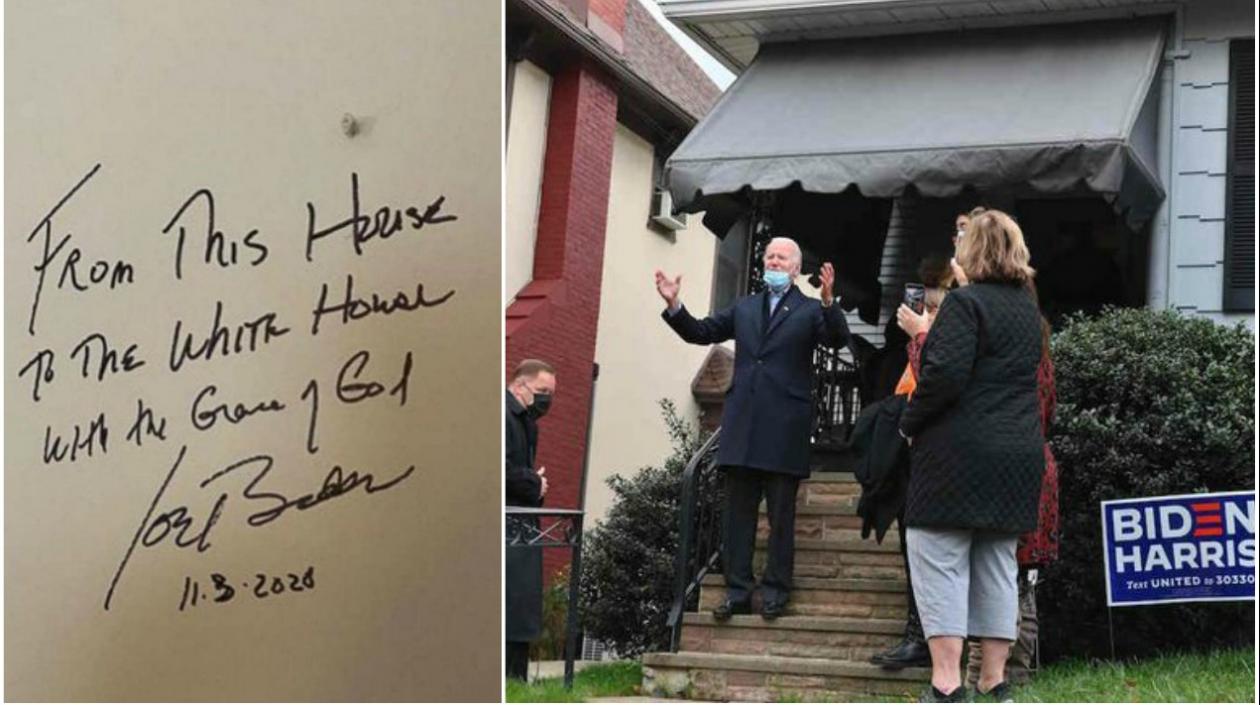 From This House
To The White House
with the Grace of God
Joe Biden
11.3.2020
BIDEN
HARRIS
Text UNITED to 30330